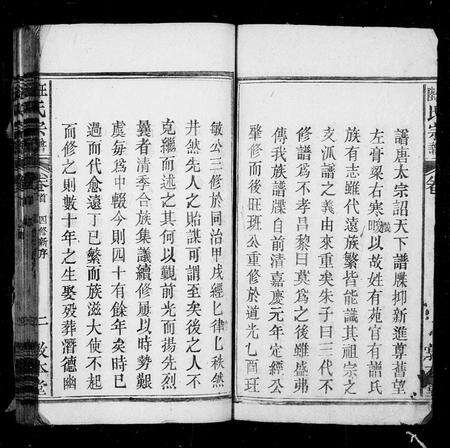 譜唐太宗詔天下譜牒抑新進尊舊望
左膏梁右寒畯以故姓有苑官有譜氏
族有志雖代遠族繁皆能識其祖宗之
支派譜之義由來重矣朱子曰三代不
修譜爲不孝昌黎曰莫爲之後雖盛弗
傳我族譜牒自前清嘉慶元年定經公
肇修而後旺班公重修於道光乙酉班
敏公三修於同治甲戌經七律七秩然
井然先人之貽謀可謂至矣後之人不
克繼而述之其何以觀前光而揚先烈
曩者清季合族集議續修屢以時勢艱
虞每爲中輟今則四十有餘年矣時已
過而代愈遠丁已繁而族滋大使不起
而修之則數十年之生娶歿葬潛德幽
氏宗譜
卷首
四修新序
二
敦本堂